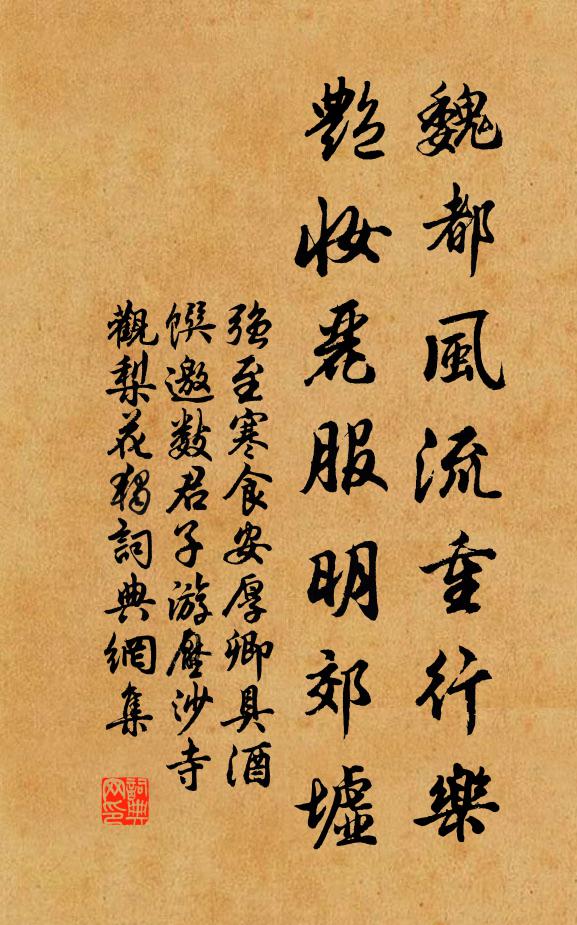 魏都風流重行樂
艷妆麗服明郊墟
強至寒食安厚卿具酒
饌邀数君子游壓沙寺
觀梨花獨詞典網集
詞典
网印